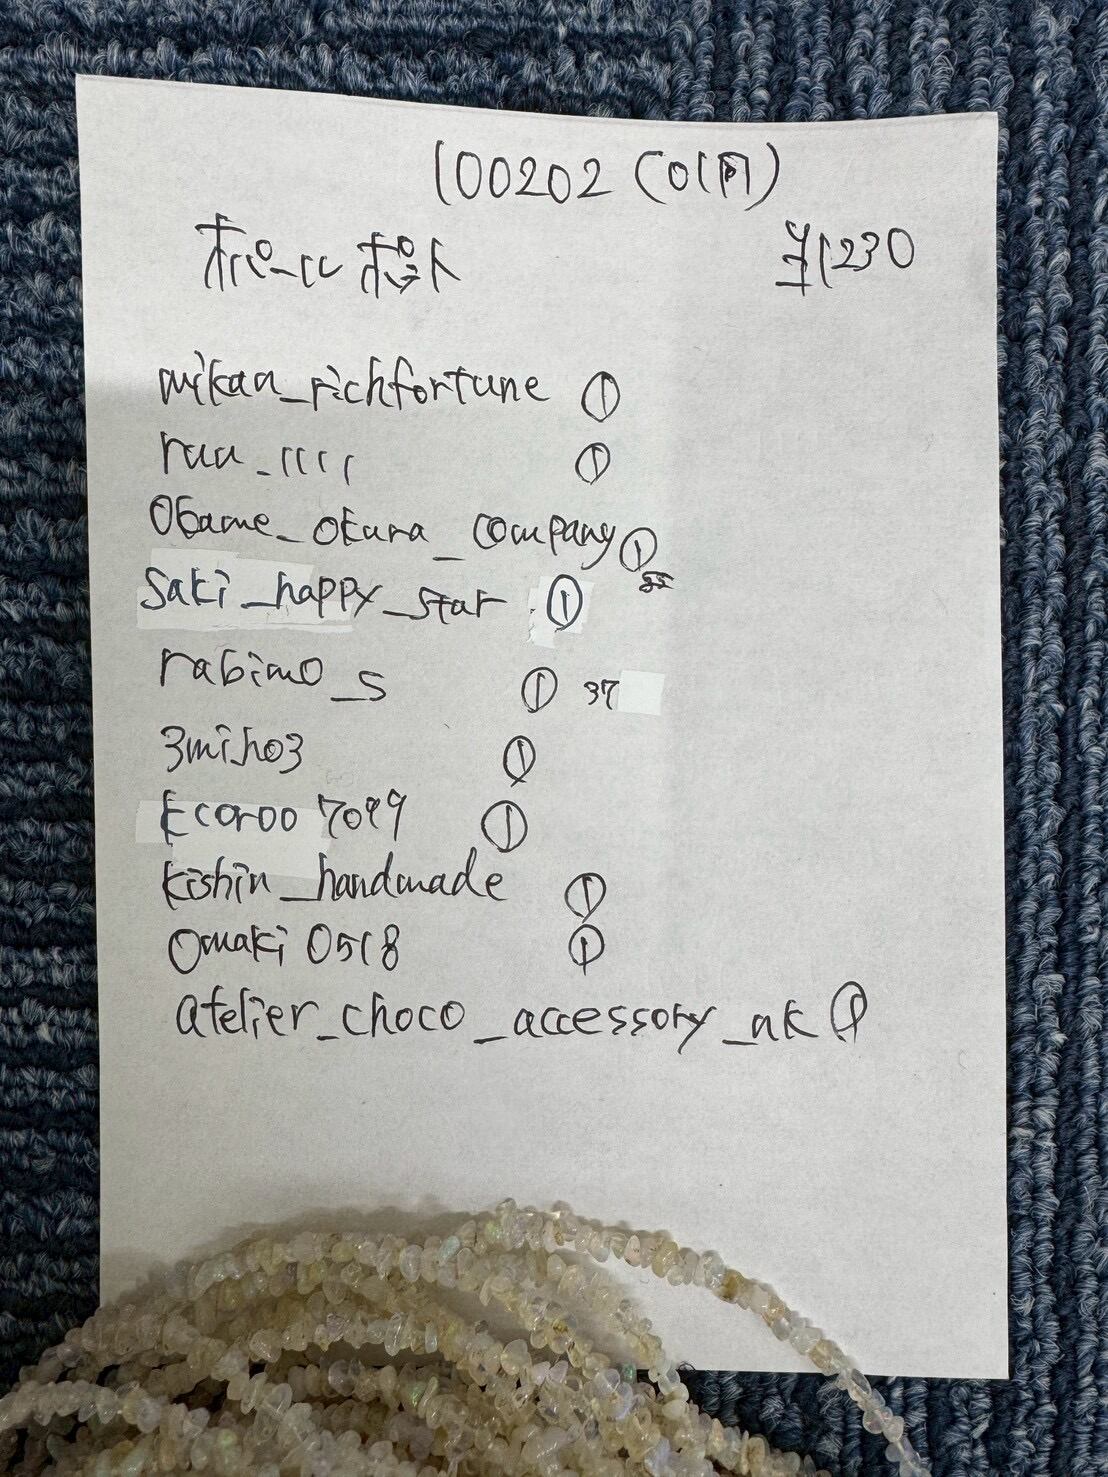 100202 (01円)
オパールポット ¥1230
mikan_richfortune ①
ruu_1111 ①
obame_okura_company ①
saki_happy_star ①
rabimo_s ① 37
3miho3 ①
kcoroo7099 ①
kishin_handmade ①
omaki0518 ①
atelier_choco_accessory_nk ①